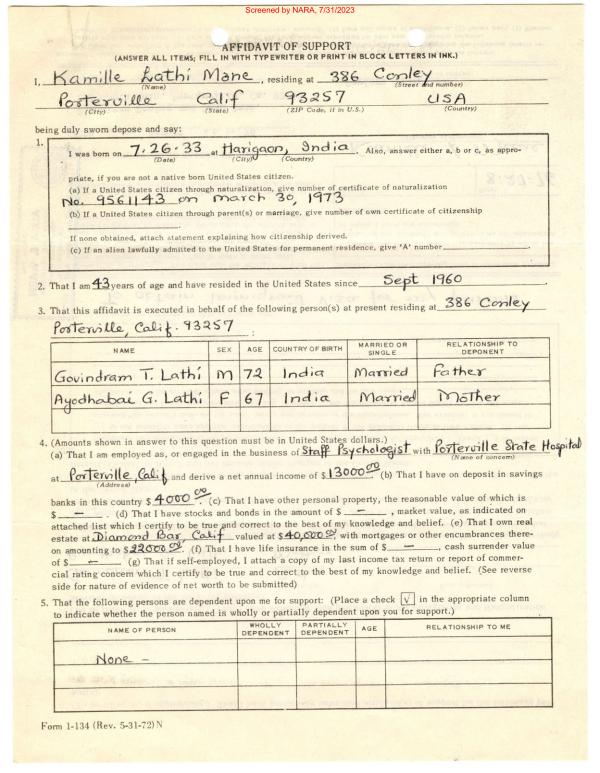 Screened by NARA, 7/31/2023
AFFIDAVIT OF SUPPORT
(ANSWER ALL ITEMS; FILL IN WITH TYPEWRITER OR PRINT IN BLOCK LETTERS IN INK.)
I, Kamille Lathi Mane, residing at 386 Conley
(Name) (Street and number)
Porterville Calif 93257 USA
(City) (State) (ZIP Code, if in U.S.) (Country)
being duly sworn depose and say:
1.
I was born on 7.26.33 at Harigaon, India. Also, answer either a, b or c, as appro-
(Date) (City) (Country)
priate, if you are not a native born United States citizen.
(a) If a United States citizen through naturalization, give number of certificate of naturalization
No. 9561143 on march 30, 1973
(b) If a United States citizen through parent(s) or marriage, give number of own certificate of citizenship
If none obtained, attach statement explaining how citizenship derived.
(c) If an alien lawfully admitted to the United States for permanent residence, give 'A' number
2. That I am 43 years of age and have resided in the United States since Sept 1960
3. That this affidavit is executed in behalf of the following person(s) at present residing at 386 Conley
Porterville, Calif. 93257 :
NAME SEX AGE COUNTRY OF BIRTH MARRIED OR SINGLE RELATIONSHIP TO DEPONENT
Govindram T. Lathi M 72 India Married Father
Ayodhabai G. Lathi F 67 India Married Mother
4. (Amounts shown in answer to this question must be in United States dollars.)
(a) That I am employed as, or engaged in the business of Staff Psychologist with Porterville State Hospital
(Name of concern)
at Porterville, Calif and derive a net annual income of $ 13000.00 (b) That I have on deposit in savings
(Address)
banks in this country $ 4000.00. (c) That I have other personal property, the reasonable value of which is
$ — . (d) That I have stocks and bonds in the amount of $ — , market value, as indicated on
attached list which I certify to be true and correct to the best of my knowledge and belief. (e) That I own real
estate at Diamond Bar, Calif valued at $ 40,000.00 with mortgages or other encumbrances there-
on amounting to $ 22000.00. (f) That I have life insurance in the sum of $ — , cash surrender value
of $ — (g) That if self-employed, I attach a copy of my last income tax return or report of commer-
cial rating concern which I certify to be true and correct to the best of my knowledge and belief. (See reverse
side for nature of evidence of net worth to be submitted)
5. That the following persons are dependent upon me for support: (Place a check √ in the appropriate column
to indicate whether the person named is wholly or partially dependent upon you for support.)
NAME OF PERSON WHOLLY DEPENDENT PARTIALLY DEPENDENT AGE RELATIONSHIP TO ME
None –
Form 1-134 (Rev. 5-31-72) N